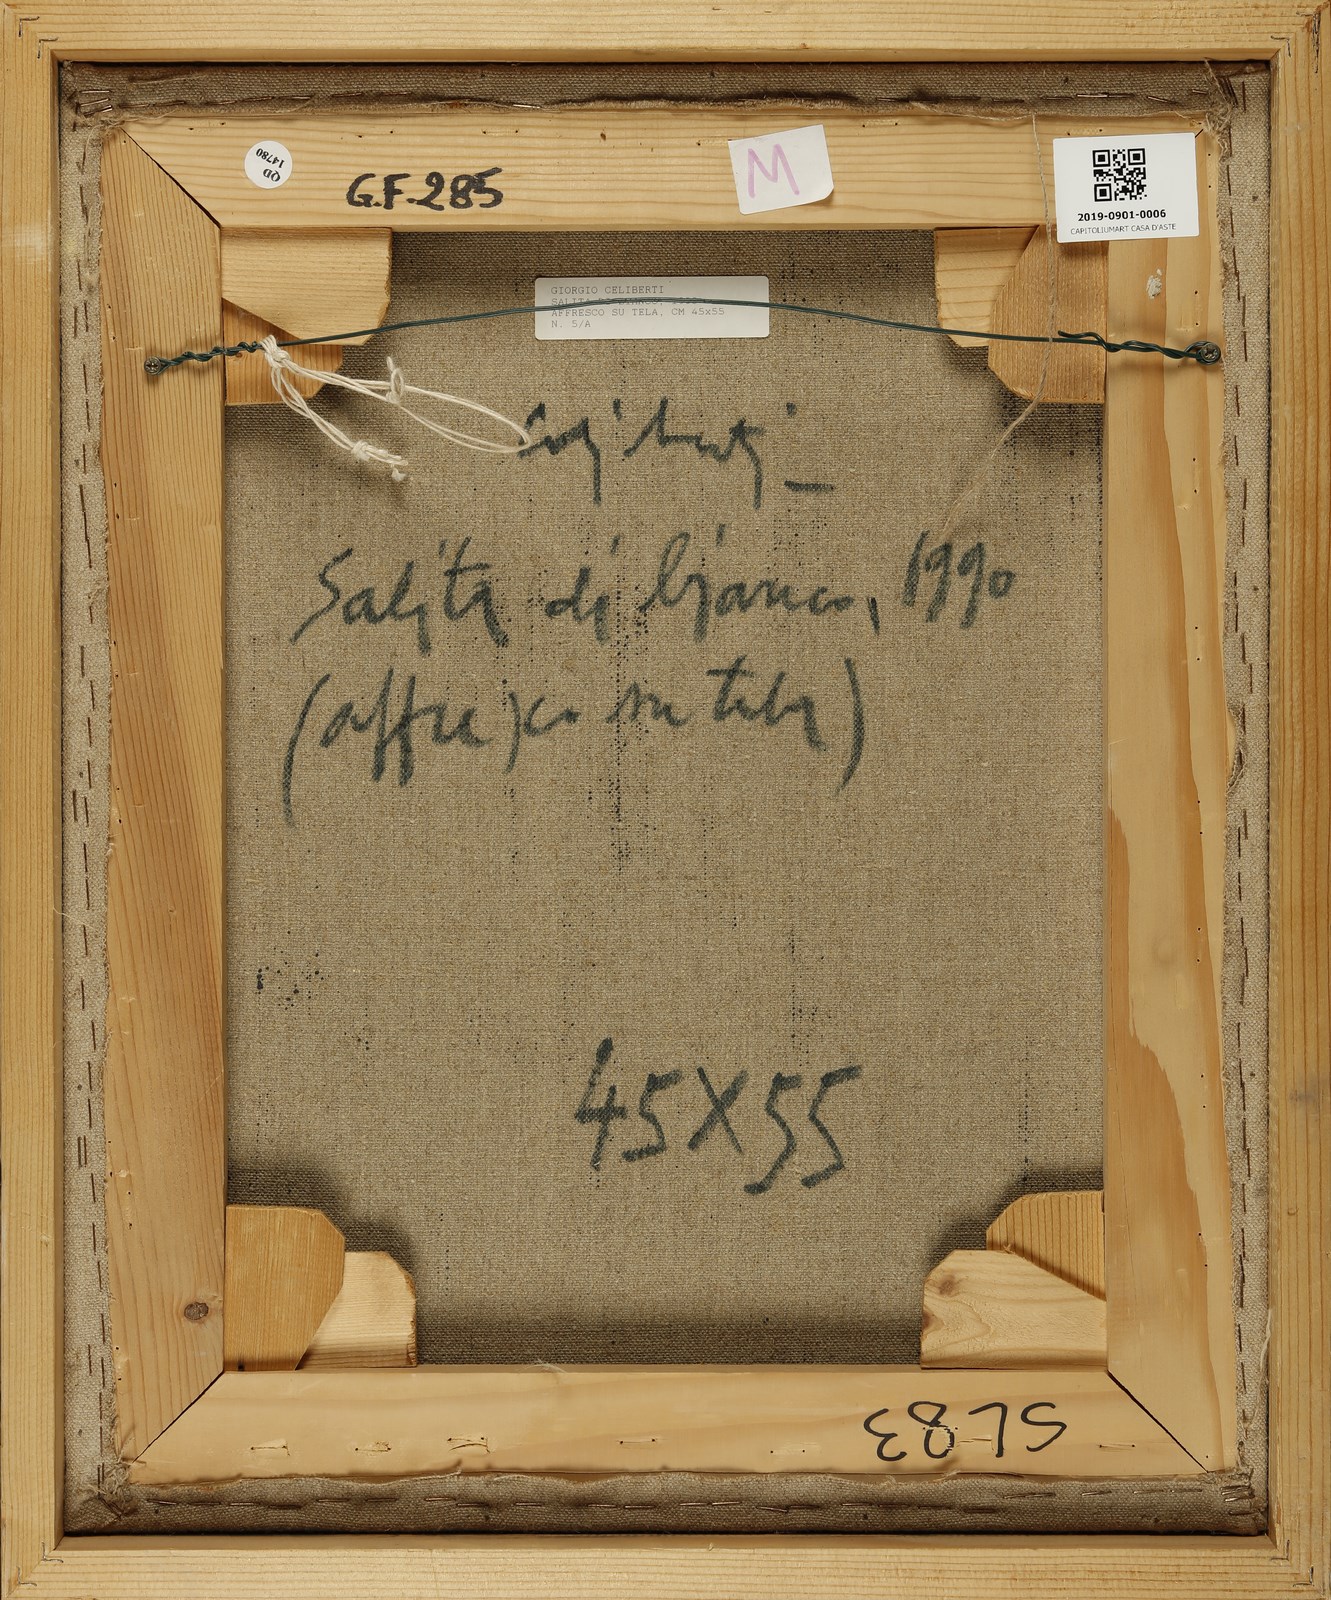 QD
14780
G.F.285
M
2019-0901-0006
CAPITOLIUMART CASA D'ASTE
GIORGIO CELIBERTI
SALITA DI
AFFRESCO SU TELA, CM 45x55
N. 5/A
Celiberti_
Salita di 1990
(affresco su tela)
45X55
SL83